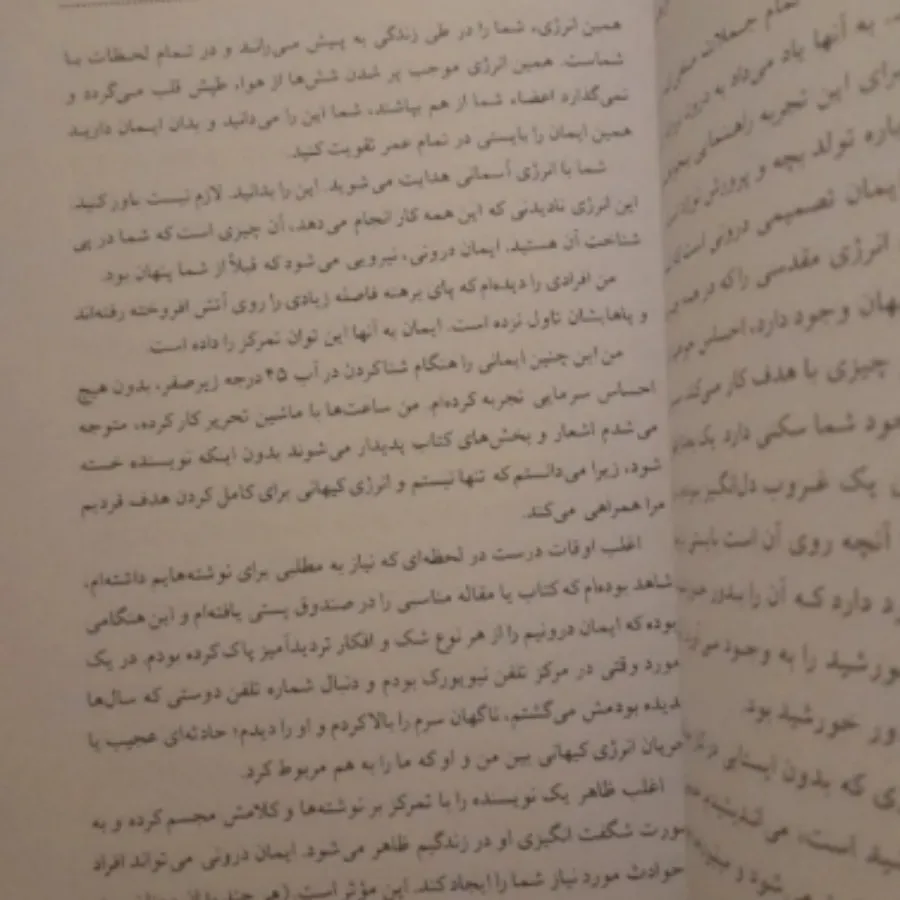 همین انرژی، شما را در طی زندگی به پیش می‌راند و در تمام لحظات با
شماست. همین انرژی موجب پر شدن شش‌ها از هوا، طپش قلب می‌گردد و
نمی‌گذارد اعضاء شما از هم بپاشند، شما این را می‌دانید و بدان ایمان دارید
همین ایمان را بایستی در تمام عمر تقویت کنید.
شما با انرژی آسمانی هدایت می‌شوید. این را بدانید. لازم نیست باور کنید.
این انرژی نادیدنی که این همه کار انجام می‌دهد، آن چیزی است که شما در پی
شناخت آن هستید. ایمان درونی، نیرویی می‌شود که قبلاً از شما پنهان بود.
من افرادی را دیده‌ام که پای برهنه فاصله زیادی را روی آتش افروخته رفته‌اند
و پاهایشان تاول نزده است. ایمان به آنها این توان تمرکز را داده است.
من این چنین ایمانی را هنگام شنا کردن در آب ۴۵ درجه زیر صفر، بدون هیچ
احساس سرمایی تجربه کرده‌ام. من ساعت‌ها با ماشین تحریر کار کرده، متوجه
می‌شدم اشعار و بخش‌های کتاب پدیدار می‌شوند بدون اینکه نویسنده خسته
شود، زیرا می‌دانستم که تنها نیستم و انرژی کیهانی برای کامل کردن هدف فردیم
مرا همراهی می‌کند.
اغلب اوقات درست در لحظه‌ای که نیاز به مطلبی برای نوشته‌هایم داشته‌ام،
شاهد بوده‌ام که کتاب یا مقاله مناسبی را در صندوق پستی یافته‌ام و این هنگامی
بوده که ایمان درونیم را از هر نوع شک و افکار تردیدآمیز پاک کرده بودم. در یک
مورد وقتی در مرکز تلفن نیویورک بودم و دنبال شماره تلفن دوستی که سال‌ها
ندیده بودمش می‌گشتم، ناگهان سرم را بالا کردم و او را دیدم؛ حادثه‌ای عجیب با
جریان انرژی کیهانی بین من و او که ما را به هم مربوط کرد.
اغلب ظاهر یک نویسنده را با تمرکز بر نوشته‌ها و کلامش مجسم کرده و به
صورت شگفت انگیزی او در زندگیم ظاهر می‌شود. ایمان درونی می‌تواند افراد
حوادث مورد نیاز شما را ایجاد کند. این مؤثر است. (هر چند
تمام جملات
به آنها یاد می‌داد به درون
برای این تجربه راهنمایی
باره تولد بچه و پرورش
ایمان تصمیمی درونی است
انرژی مقدسی را که در همه
وجود دارد، احساس
چیزی با هدف کار می‌کند
شما سکنی دارد یک
یک غروب دل‌انگیز
آنچه روی آن است
دارد که آن را بدور
خورشید را به وجود می‌آورد
دور خورشید بود.
که بدون ایستای در
است، می‌اندیشید
می‌شود و